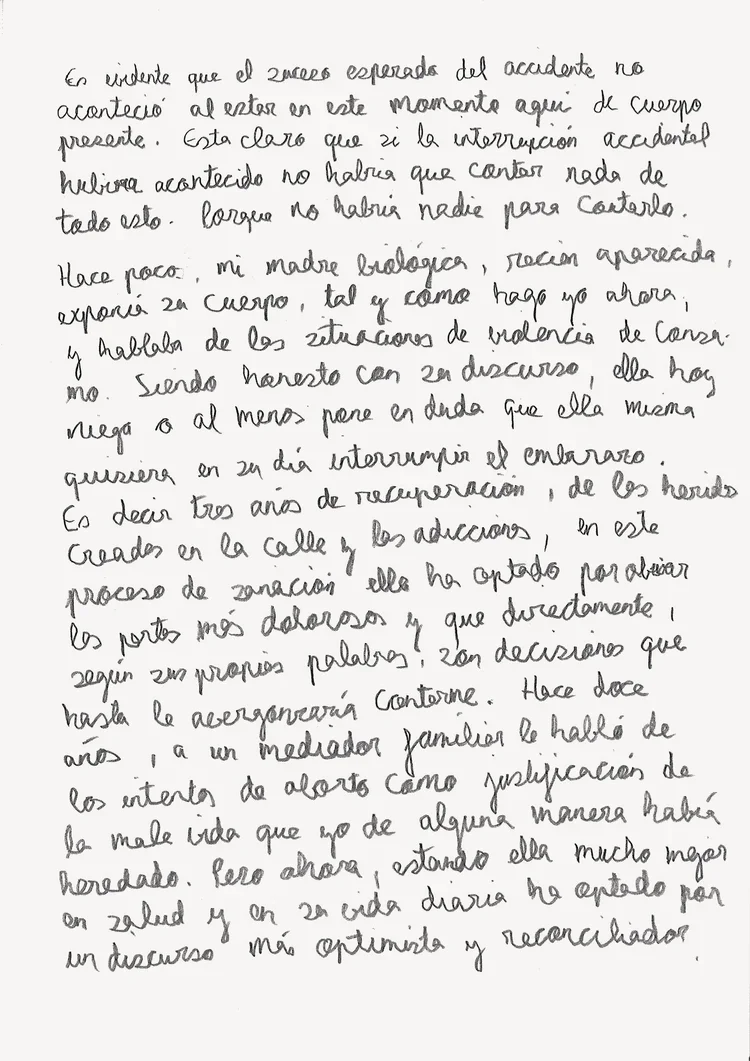 Es evidente que el suceso esperado del accidente no
aconteció al estar en este momento aquí de cuerpo
presente. Esta claro que si la interrupción accidental
hubiera acontecido no habría que contar nada de
todo esto. Porque no habría nadie para contarlo.
Hace poco, mi madre biológica, recien aparecida,
exponía su cuerpo, tal y cómo hago yo ahora,
y hablaba de las situaciones de violencia de consu-
mo. Siendo honesto con su discurso, ella hoy
niega o al menos pone en duda que ella misma
quisiera en su día interrumpir el embarazo.
Es decir tres años de recuperación, de las heridas
creadas en la calle y las adicciones, en este
proceso de sanación ella ha optado por obviar
las partes más dolorosas y que directamente,
según sus propias palabras, són decisiones que
hasta le avergonzaría contarme. Hace doce
años, a un mediador familiar le habló de
los intentos de aborto cómo justificación de
la mala vida que yo de alguna manera había
heredado. Pero ahora, estando ella mucho mejor
en salud y en su vida diaria ha optado por
un discurso más optimista y reconciliador.